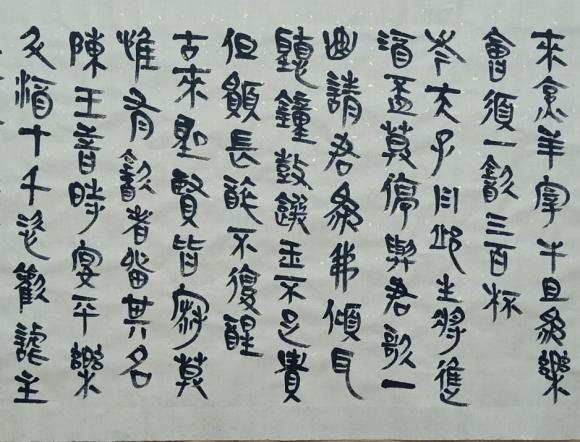 來烹羊宰牛且爲樂
會須一飲三百杯
岑夫子丹邱生將進
酒盃莫停與君歌一
曲請君爲我傾耳
聽鐘鼓饌玉不足貴
但願長醉不復醒
古來聖賢皆寂莫
惟有飲者留其名
陳王昔時宴平樂
斗酒十千恣歡謔主